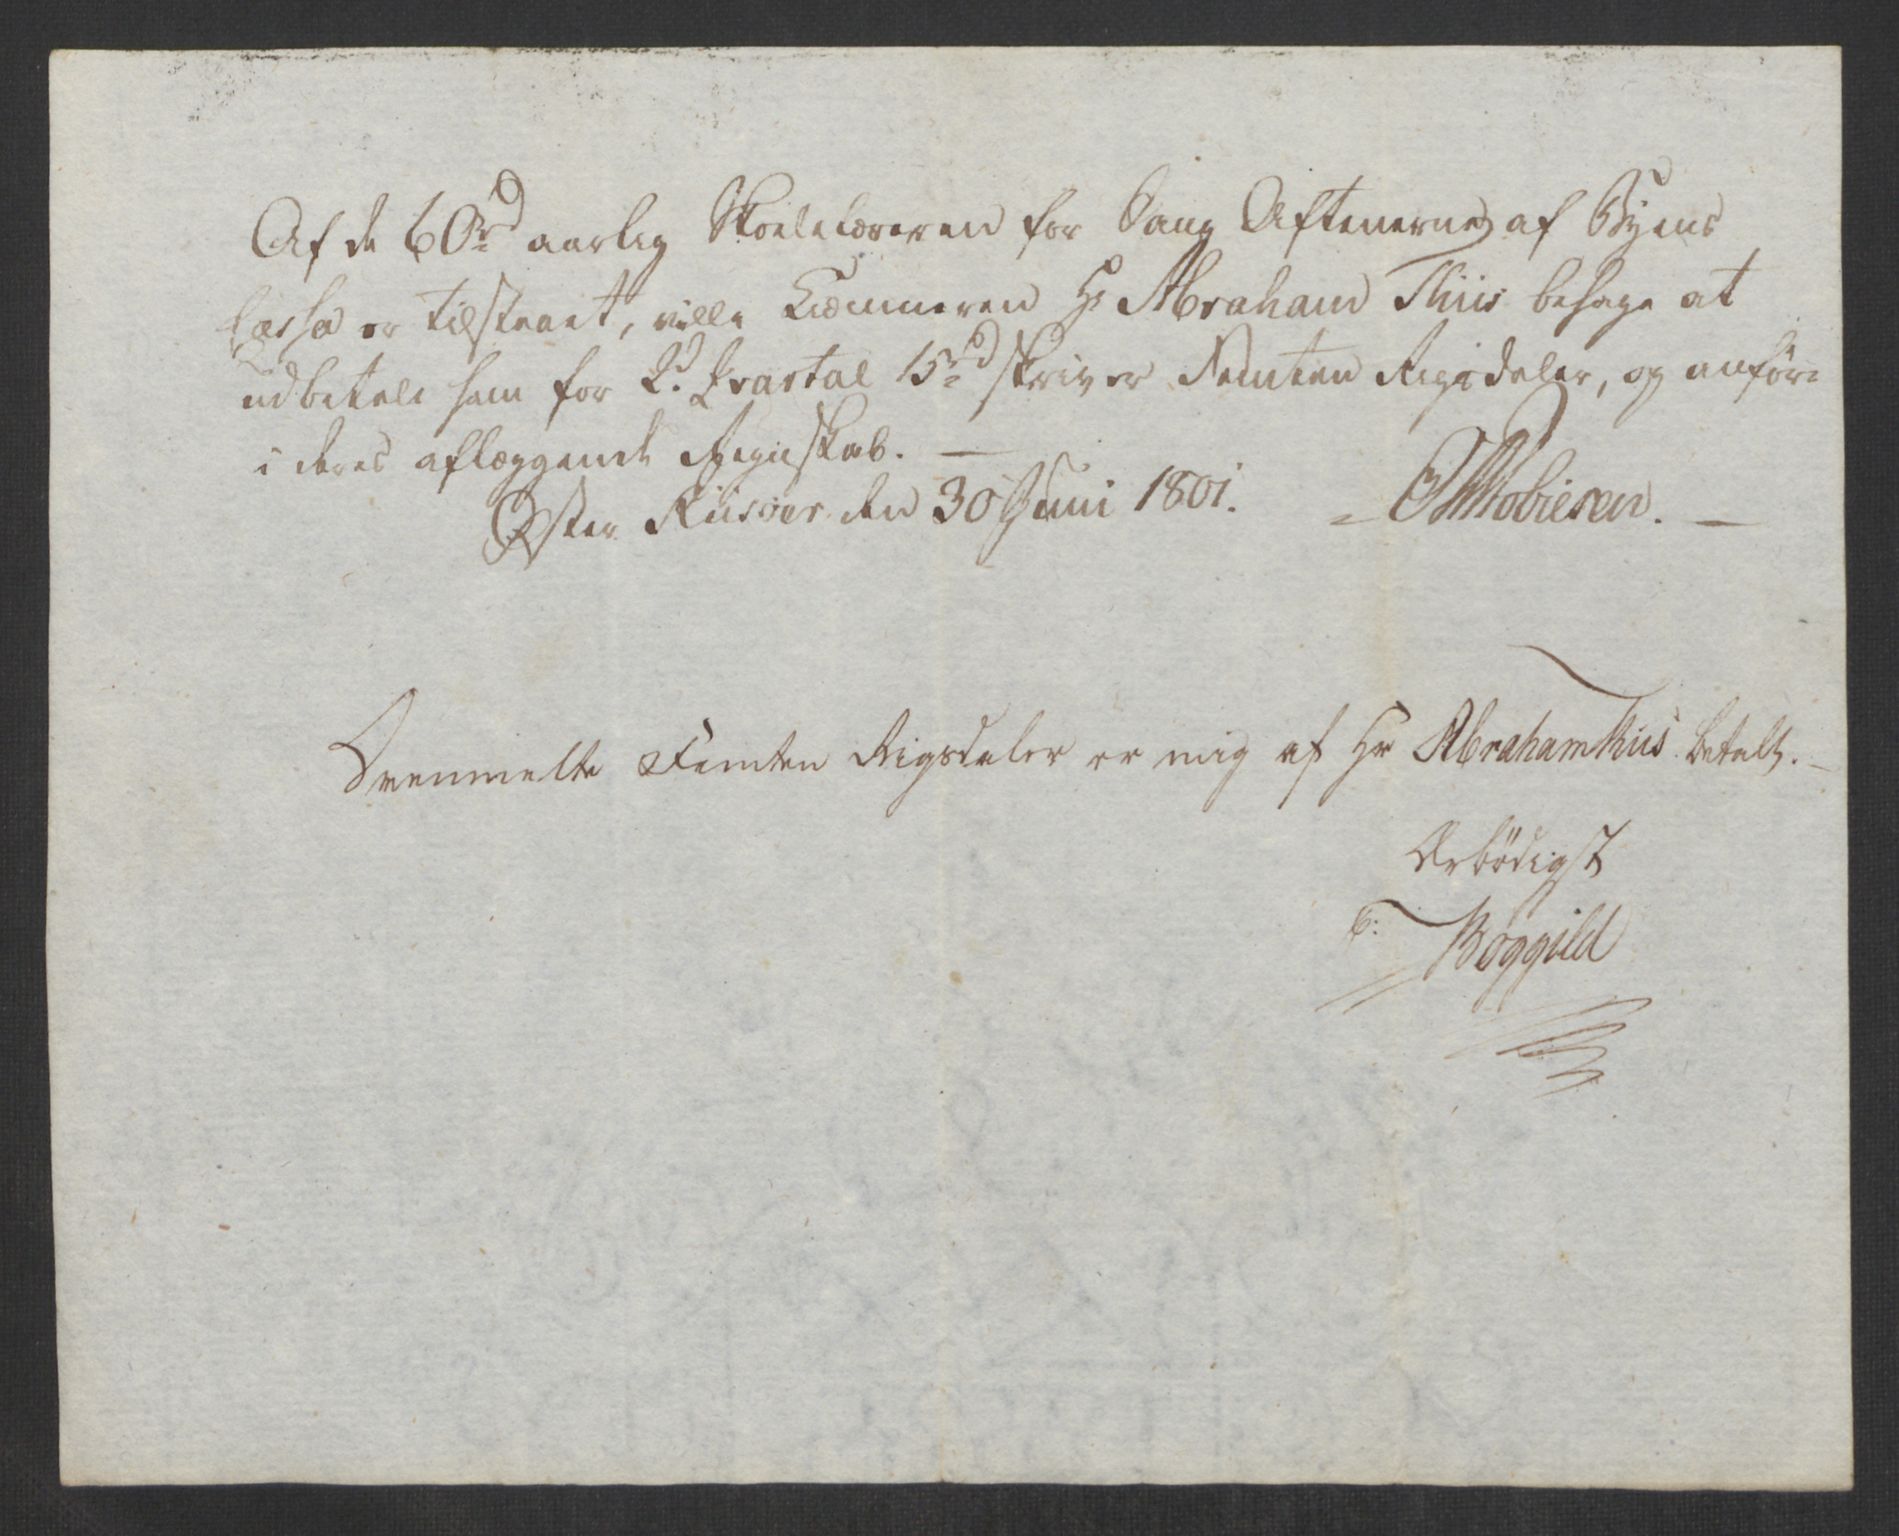 Af de 60 rd aarlig Skolelæreren for Sang Aftenerne af Byens
Cassa er tilstaaet, ville Kæmneren Hr Abraham Thiis behage at
udbetale ham for 2. Qvartal 15 rd skriver Femten Rigsdaler, og anføre
i deres aflæggende Regnskab. —
Øster Riisøer den 30 Juni 1801.
Ovenmelte Femten Rigsdaler er mig af Hr Abraham Thiis betalt. —
Ærbödigst
Böggild